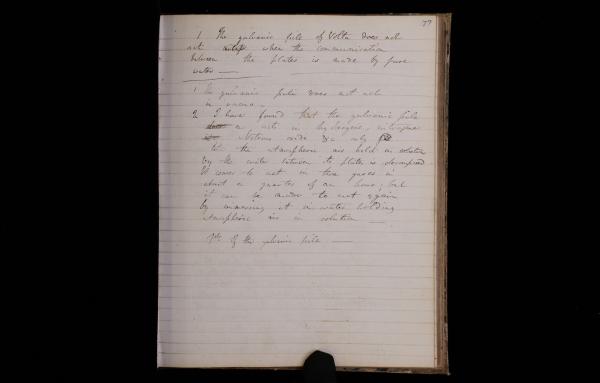 77
1 The galvanic pile of Volta does not
act when the communication
between the plates is made by pure
water —
1 The galvanic pile does not act
in vacuo —
2 I have found that the galvanic pile
acts in hydrogene, nitrogene
Nitrous oxide &c only
till the Atmospheric air held in solution
by the water between the plates is decomposed
It ceases to act in these gases in
about a quarter of an hour; but
it can be made to act again
by immersing it in water holding
Atmospheric air in solution —
Of the galvanic pile —